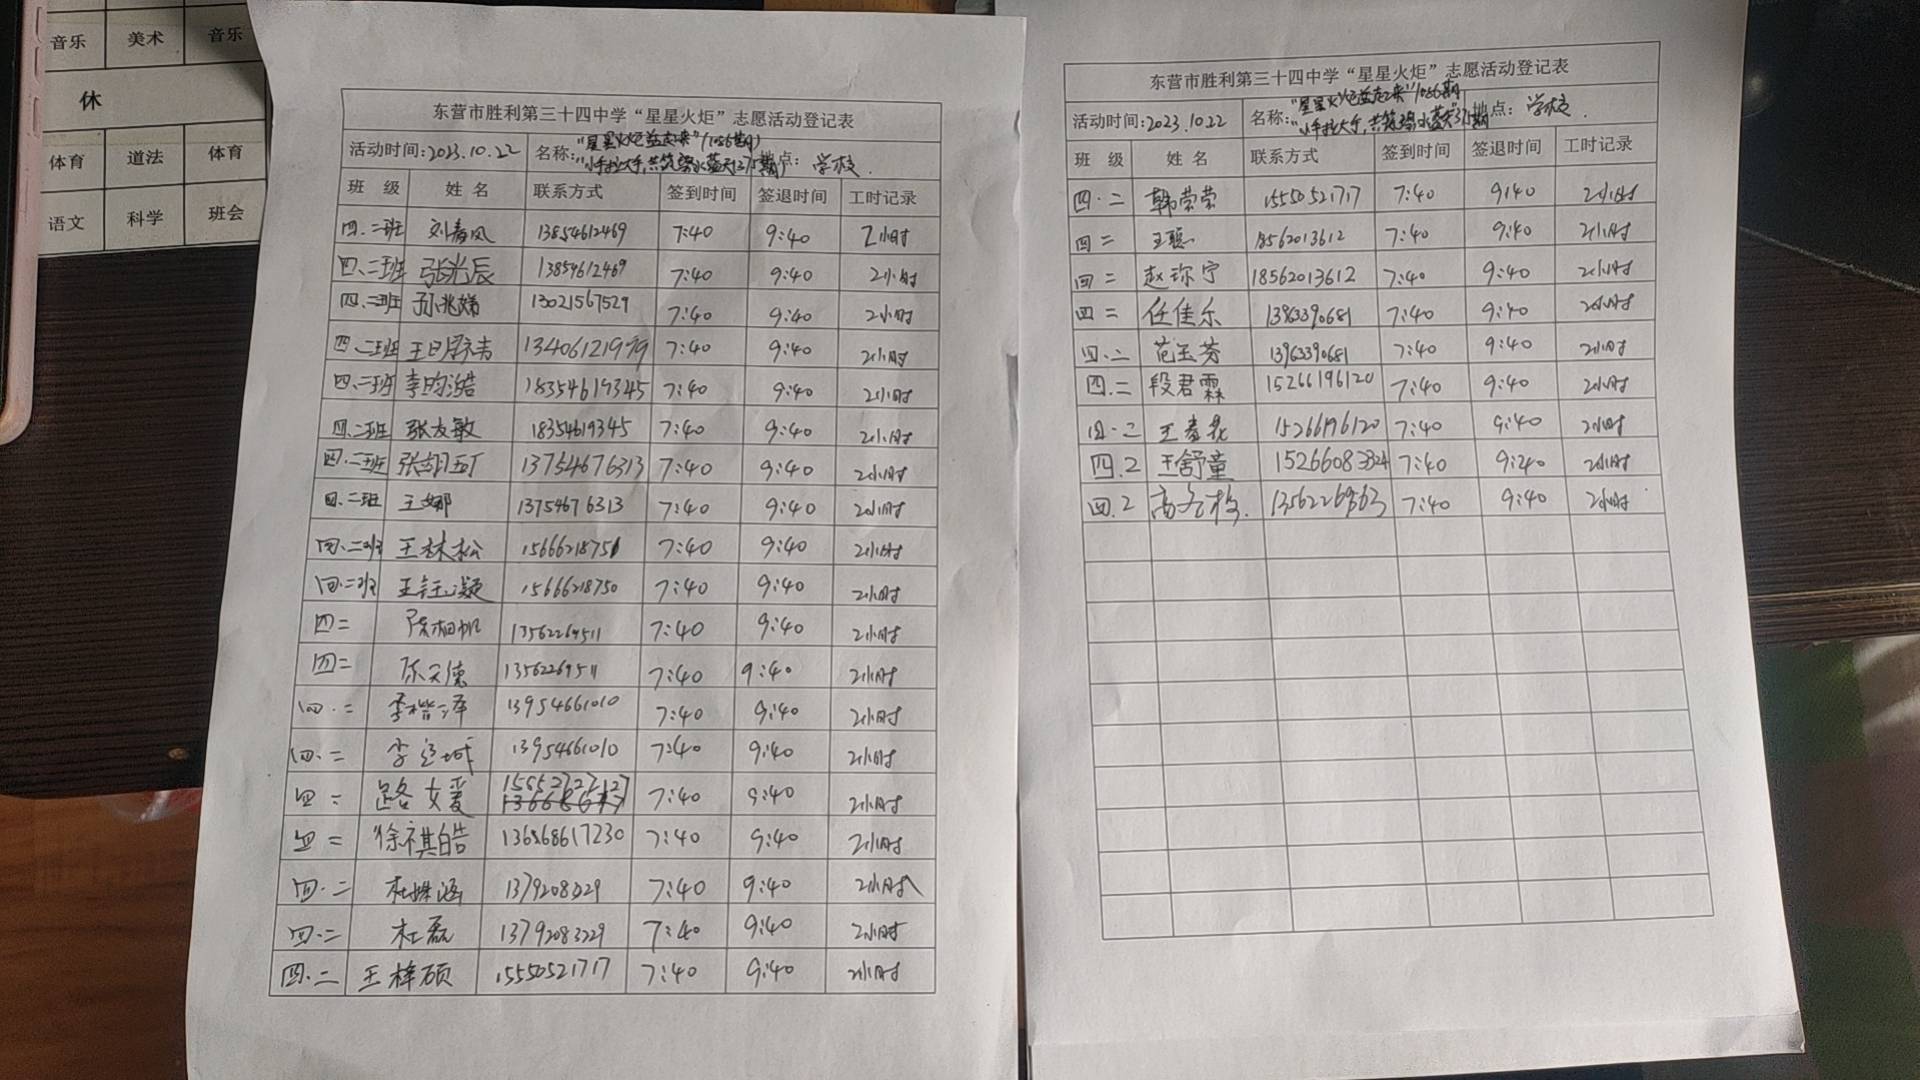 音乐 美术 音乐
休
体育 道法 体育
语文 科学 班会
东营市胜利第三十四中学“星星火炬”志愿活动登记表
活动时间:2023.10.22 名称: “星星火炬益起来”(1056期) 地点: 学校.
“小手拉大手,共筑碧水蓝天
班 级 姓 名 联系方式 签到时间 签退时间 工时记录
四.二班 刘春凤 13854612469 7:40 9:40 2小时
四.二班 张光辰 13854612469 7:40 9:40 2小时
四.二班 孙兆娣 13021567529 7:40 9:40 2小时
四.二班 13406121979 7:40 9:40 2小时
四.二班 李昀浩 18354619345 7:40 9:40 2小时
四.二班 张友敏 18354619345 7:40 9:40 2小时
四.二班 13754676313 7:40 9:40 2小时
四.二班 王娜 13754676313 7:40 9:40 2小时
四.二班 王林松 7:40 9:40 2小时
四.二班 15666218750 7:40 9:40 2小时
四二 13562269511 7:40 9:40 2小时
四二 陈天德 13562269511 7:40 9:40 2小时
四.二 李楷泽 13954661010 7:40 9:40 2小时
四.二 13954661010 7:40 9:40 2小时
四二 路女爱 7:40 9:40 2小时
四二 徐祺皓 7:40 9:40 2小时
四.二 7:40 9:40 2小时
四.二 杜磊 13792083229 7:40 9:40 2小时
四.二 王梓硕 15550521717 7:40 9:40 2小时
东营市胜利第三十四中学“星星火炬”志愿活动登记表
活动时间:2023.10.22 名称: “星星火炬益起来”1056期 地点: 学校.
“小手拉大手,共筑碧水蓝天
班 级 姓 名 联系方式 签到时间 签退时间 工时记录
四.二 韩荣荣 15550521717 7:40 9:40 2小时
四二 王聪 18562013612 7:40 9:40 2小时
四二 赵珎宁 18562013612 7:40 9:40 2小时
四二 任佳乐 13963390681 7:40 9:40 2小时
四.二 范玉芬 13963390681 7:40 9:40 2小时
四.二 段君霖 15266196120 7:40 9:40 2小时
四.二 15266196120 7:40 9:40 2小时
四.2 王舒童 15266083324 7:40 9:40 2小时
四.2 7:40 9:40 2小时